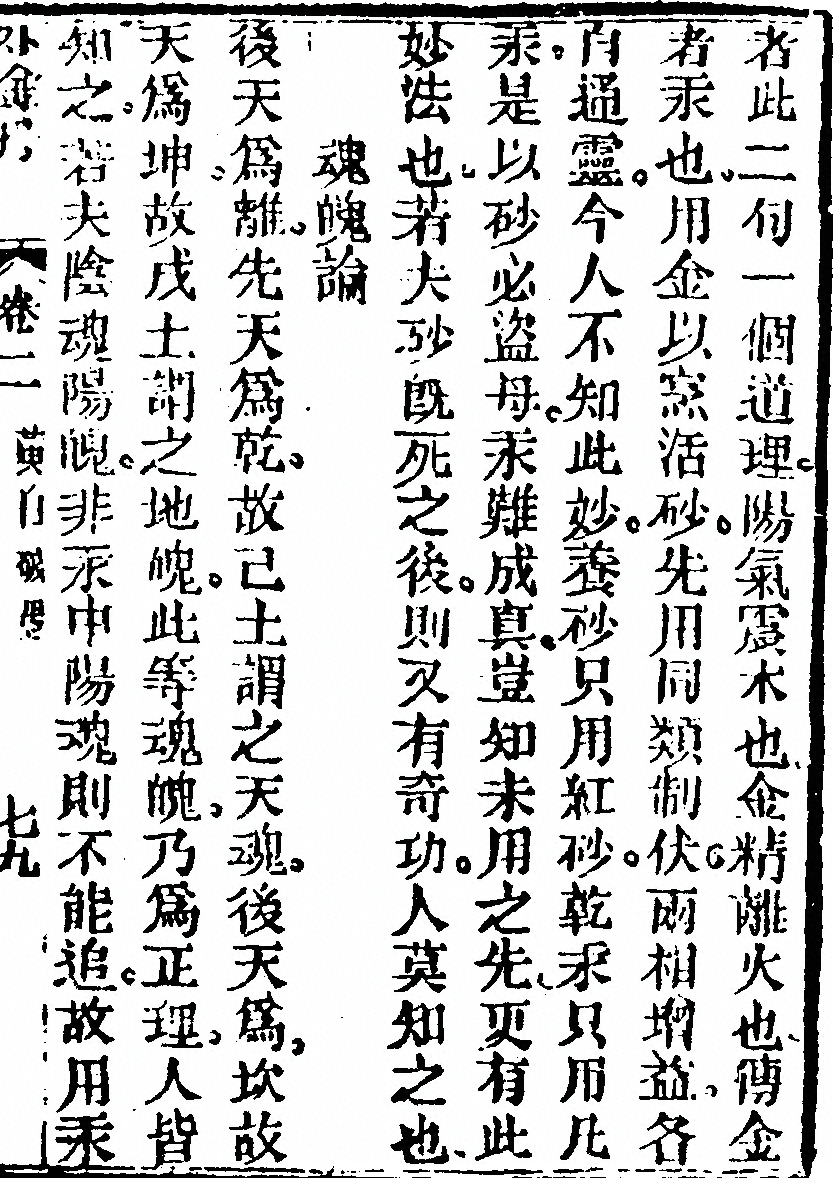 者此二句一個道理。陽氣震木也、金精離火也、傳金
者汞也、用金以窯活砂。先用同類制伏。兩相增益、各
自通靈。今人不知此妙。養砂只用紅砂。乾汞只用凡
汞。是以砂必盜母。汞難成真。豈知未用之先、更有此
妙法也、若夫砂既死之後。則又有奇功。人莫知之也、
魂魄論
後天爲離。先天爲乾。故己土謂之天魂。後天爲坎、故
天爲坤。故戊土謂之地魄。此等魂魄、乃爲正理、人皆
知之。若夫陰魂陽魄。非汞中陽魂則不能追。故用汞
外金丹 卷二 黃白破愚 七九